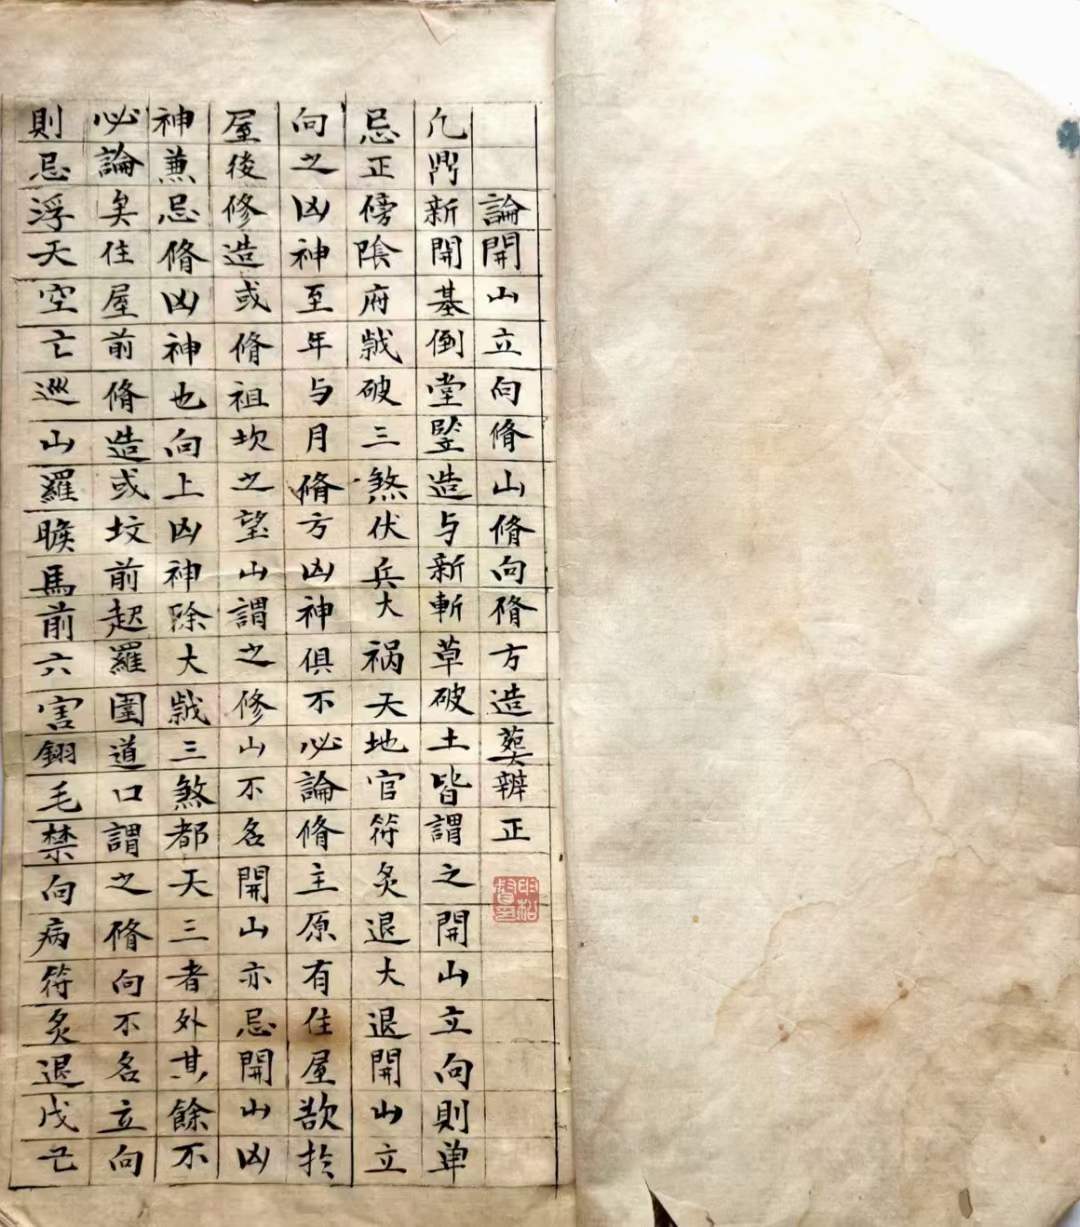 論開山立向脩山脩向脩方造𦵏辨正
凢鼎新開基倒堂竪造与新斬草破土皆謂之開山立向則単
忌正傍陰府㦸破三煞伏兵大祸天地官符炙退大退開山立
向之凶神至年与月脩方凶神俱不必論脩主原有住屋欲扵
屋後修造或脩祖坎之望山謂之修山不名開山亦忌開山凶
神兼忌脩凶神也向上凶神除大㦸三煞都天三者外其餘不
必論矣住屋前脩造或坟前起羅圍道口謂之脩向不名立向
則忌浮天空亡巡山羅睺馬前六害翎毛禁向病符炙退戊亡